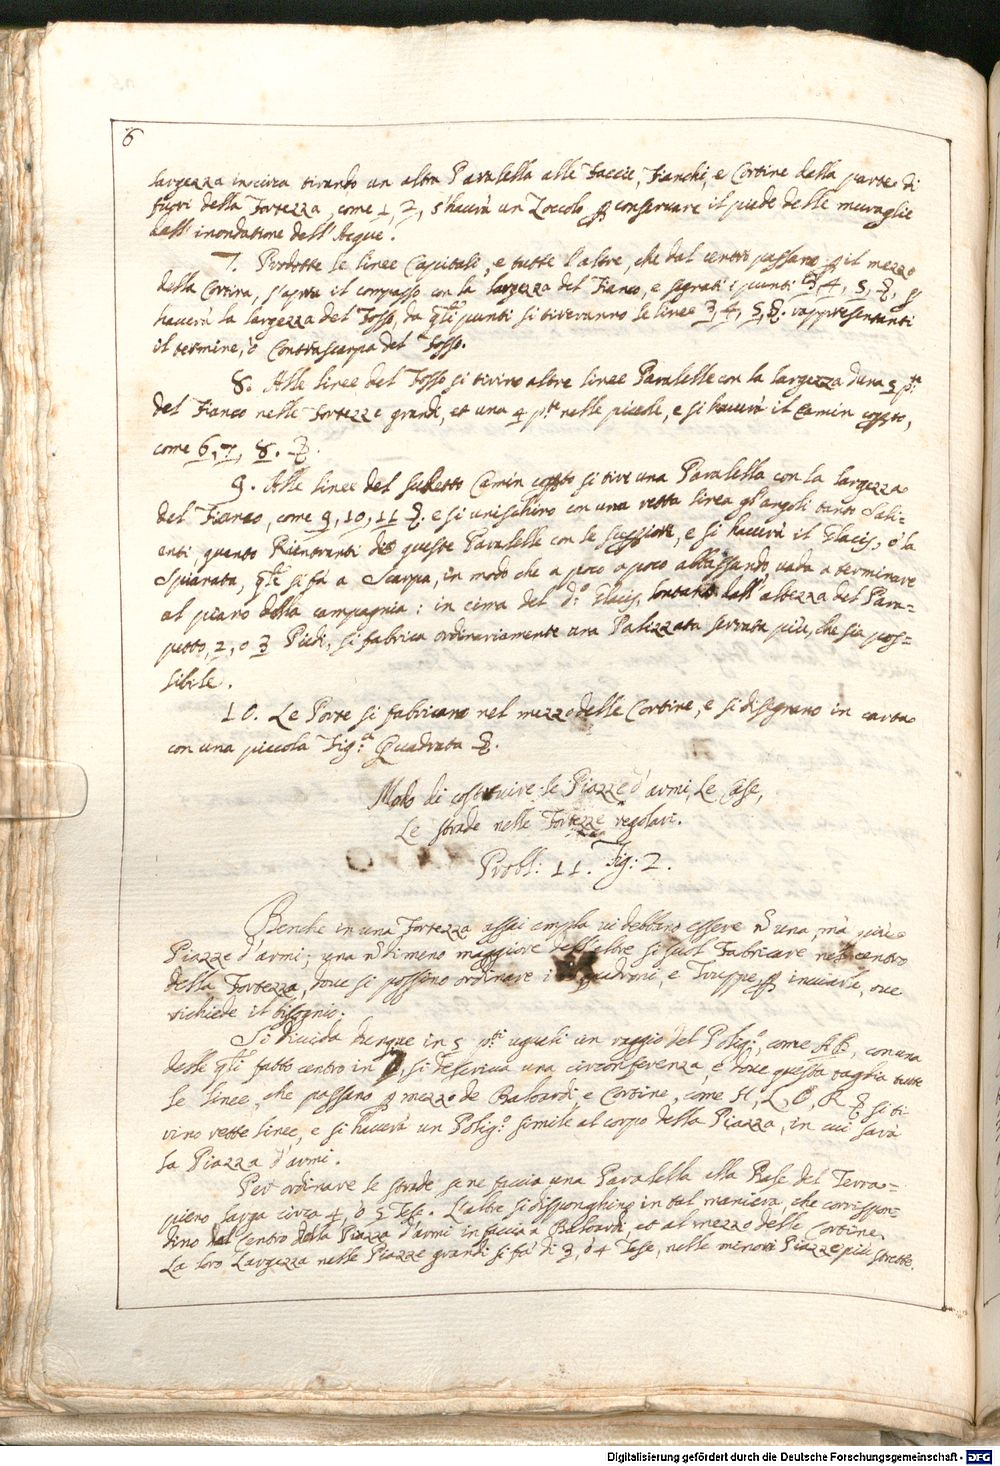 6
largezza incirca tirando un altra Paralella alle Faccie, Fianchi, e Cortine dalla parte di
fuori della Fortezza, come 1, 2, s'haverà un Zoccolo p conservare il piede delle muraglie
dall' inondatione dell' Acque.
7. Prodotte le linee Capitali, e tutte l'altre, che dal centro passano p il mezzo
della Cortina, s'apra il compasso con la largezza del Fianco, e segnati i punti 3, 4, 5, &, p
haverà la largezza del Fosso, da qsti punti si tireranno le linee 3, 4, 5, &. rappresentanti
il termine, ò Contrascarpa del Fosso.
8. Alle linee del Fosso si tirino altre linee Paralelle con la largezza d'una 5 pte
del Fianco nelle Fortezze grandi, et una 4 pte nelle picole, e si haverà il Camin copto,
come 6, 7, 8. &.
9. Alle linee del sudetto Camin copto si tire una Paralella con la largezza
del Fianco, come 9, 10, 11 &. e si unischino con una retta linea gl'angoli tanto Sali-
enti, quanto Rientranti di queste Paralelle con le , e si haverà il Glacis, ò la
Spianata, qle si fà a Scarpa, in modo che a poco a poco abbassando vada a terminare
al piano della campagnia: in cima del do Glacis, lontano dall' altezza del Para-
petto, 2, o 3 Piedi, si fabrica ordinariamente una Palizzata serrata più, che sia pos-
sibile.
10. Le Porte si fabricano nel mezzo delle Cortine, e si disegnano in carta
con una piccola Figa Quadrata &.
Modo di costruire le Piazze d'armi, Le Case,
Le strade nelle Fortezze regolari.
Probl: 11. Fig: 2.
Benche in una Fortezza assai ampla vi debbano essere nō una, mà più
Piazze d'armi; una nōdimeno maggiore dell'altre si suol Fabricare nel centro
della Fortezza, doue si possino ordinare i quadroni, e Truppe p inuiarle, oue
richiede il bisognio.
Si diuida dunque in 5 pti uguali un raggio del Poligo, come AB, con una
delle qli fatto centro in , si descriua una circonferenza, e doue questa taglia tutte
le linee, che passano p mezzo de Baloardi, e Cortine, come H, L, O, R & si ti-
rino rette linee, e si haverà un Poligo simile al corpo della Piazza, in cui sarà
la Piazza d'armi.
Per ordinare le strade se ne faccia una Paralella alla Base del Terra-
pieno larga circa 4, ò 5 Tese. L'altre si disponghino in tal maniera, che corrispon-
dino dal Centro della Piazza d'armi in faccia a Baloardi, et al mezzo delle Cortine,
La loro Largezza nelle Piazze grandi si fà di 3, ò 4 Tese, nelle minori Piazze più strette.
Digitalisierung gefördert durch die Deutsche Forschungsgemeinschaft - DFG